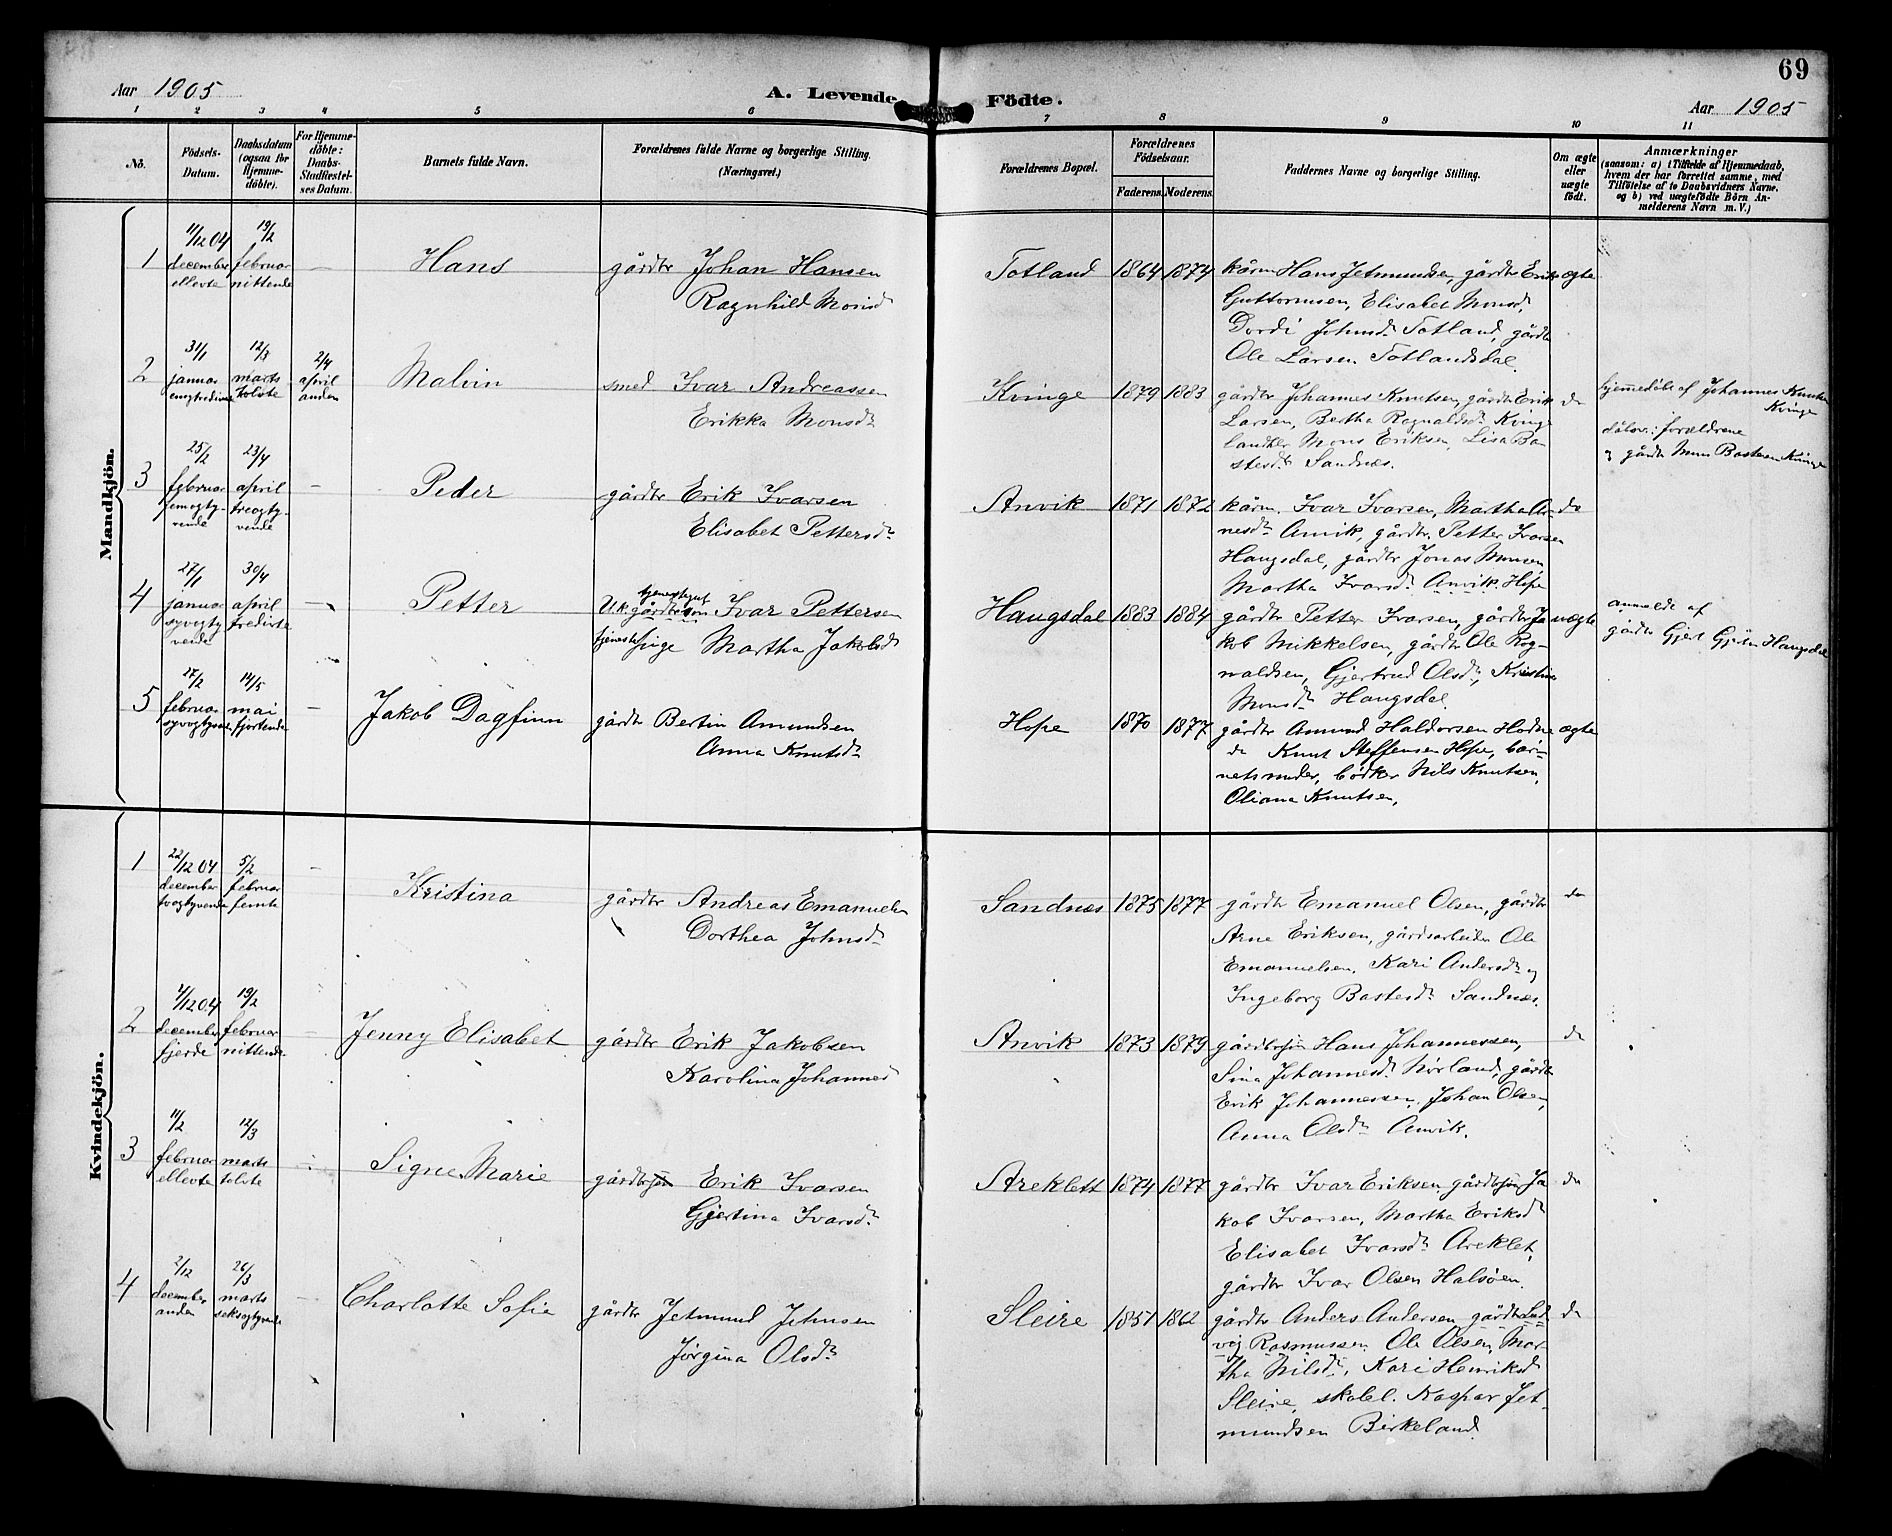 69
Aar 1905
A. Levende Födte.
Aar 1905
1 2 3 4 5 6 7 8 9 10 11
No.
Födsels-
Datum.
Daabsdatum
(ogsaa for
Hjemme-
döbte).
For Hjemme-
döbte:
Daabs-
Stadfæstel-
ses Datum.
Barnets fulde Navn.
Forældrenes fulde Navne og borgerlige Stilling.
(Næringsvei.)
Forældrenes Bopæl.
Forældrenes
Födselsaar.
Faderens. Moderens.
Faddernes Navne og borgerlige Stilling.
Om ægte
eller
uægte
födt.
Anmærkninger
(saasom: a) i Tilfælde af Hjemmedaab,
hvem der har forrettet samme, med
Tilföielse af to Daabsvidners Navne.
og b) ved uægtefödte Börn An-
melderens Navn m. V.)
Mandkjön.
1
11/12 04
december
ellevte
19/2
februar
nittende
—
Hans
gårdbr Johan Hansen
Ragnhild Monsdr
Totland
1864 1874
kårm Hans Jetmundsen, gårdbr Erik
Guttormsen, Elisabet Monsdr
Dordi Johnsdr Totland, gårdbr
Ole Larsen Totlandsdal.
ægte
2
31/1
januar
12/3
marts
tolvte
2/4
april
anden
Malvin
smed Ivar Andreassen
Erikka Monsdr
Kvinge
1879 1883
gårdbr Johannes Knutsen, gårdbr Erik
Larsen, Bertha Rognaldsdr Kvinge
Mons Eriksen, Lisa Ba-
stesdr Sandnæs.
do
hjemmedøbt af Johannes Knutsen
Kvinge
forældrene
og gårdbr Mons Bastesen Kvinge
3
25/2
februar
femogty-
vende
23/4
april
treogty-
vende
—
Peder
gårdbr Erik Ivarsen
Elisabet Pettersdr
Anvik
1871 1872
kårm. Ivar Ivarsen, Martha Ar-
nesdr Anvik, gårdbr Petter Ivarsen
Haugsdal, gårdbr Jonas Monsen,
Martha Ivarsdr Anvik, Hope
do
4
27/1
januar
syvogty
vende
30/4
april
tredivte
—
Petter
tjenestegut
U.k. gårdbrsøn Ivar Pettersen
tjenestepige Martha Jakobsdr
Haugsdal
1883 1884
gårdbr Petter Ivarsen, gårdbr Ja
kob Mikkelsen, gårdbr Ole Rog-
naldsen, Gjertrud Olsdr, Kristine
Monsdr Haugsdal.
uægte
anmeldt af
gårdbr Gjert Gjertsen Haugsdal
5
27/2
februar
syvogtyvende
14/5
mai
fjortende
—
Jakob Dagfinn
gårdbr Bertin Amundsen
Anna Knutsdr
Hope
1870 1877
gårdbr Amund Haldorsen Hodne
do Knut Steffensen Hope, bar-
nets moder, bødker Nils Knutsen,
Oliana Knutsen,
ægte
Kvindekjön.
1
22/12 04
december
toogtyvende
5/2
februar
femte
—
Kristina
gårdbr Andreas Emanuelsen
Dorthea Johnsdr
Sandnæs
1875 1877
gårdbr Emanuel Olsen, gårdbr
Arne Eriksen, gårdsarbeider Ole
Emanuelsen, Kari Andersdr og
Ingeborg Bastesdr Sandnæs.
do
2
4/12 04
december
fjerde
19/2
februar
nittende
—
Jenny Elisabet
gårdbr Erik Jakobsen
Karolina Johannesdr
Anvik
1873 1879
gårdbrsøn Hans Johannessen,
Sina Johannesdr Nørland, gårdbr
Erik Johannessen, Johan Olsen,
Anna Olsdr Anvik.
do
3
11/2
februar
ellevte
12/3
marts
tolvte
Signe Marie
gårdbrsøn Erik Ivarsen
Gjertina Ivarsdr
Areklett
1874 1877
gårdbr Ivar Eriksen, gårdbrsøn Ja
kob Ivarsen, Martha Eriksdr
Elisabet Ivarsdr Areklet,
gårdbr Ivar Olsen Halsøen.
do
4
2/12
december
anden
26/3
marts
seksogtyvende
Charlotte Sofie
gårdbr Jetmund Johnsen
Jørgina Olsdr
Sleire
1857 1862
gårdbr Anders Andersen gårdbr Lud
vig Rasmussen, Ole Olsen, Mar-
tha Nilsdr, Kari Henriksdr
Sleire, skolel. Kaspar Jet-
mundsen Birkeland.
do